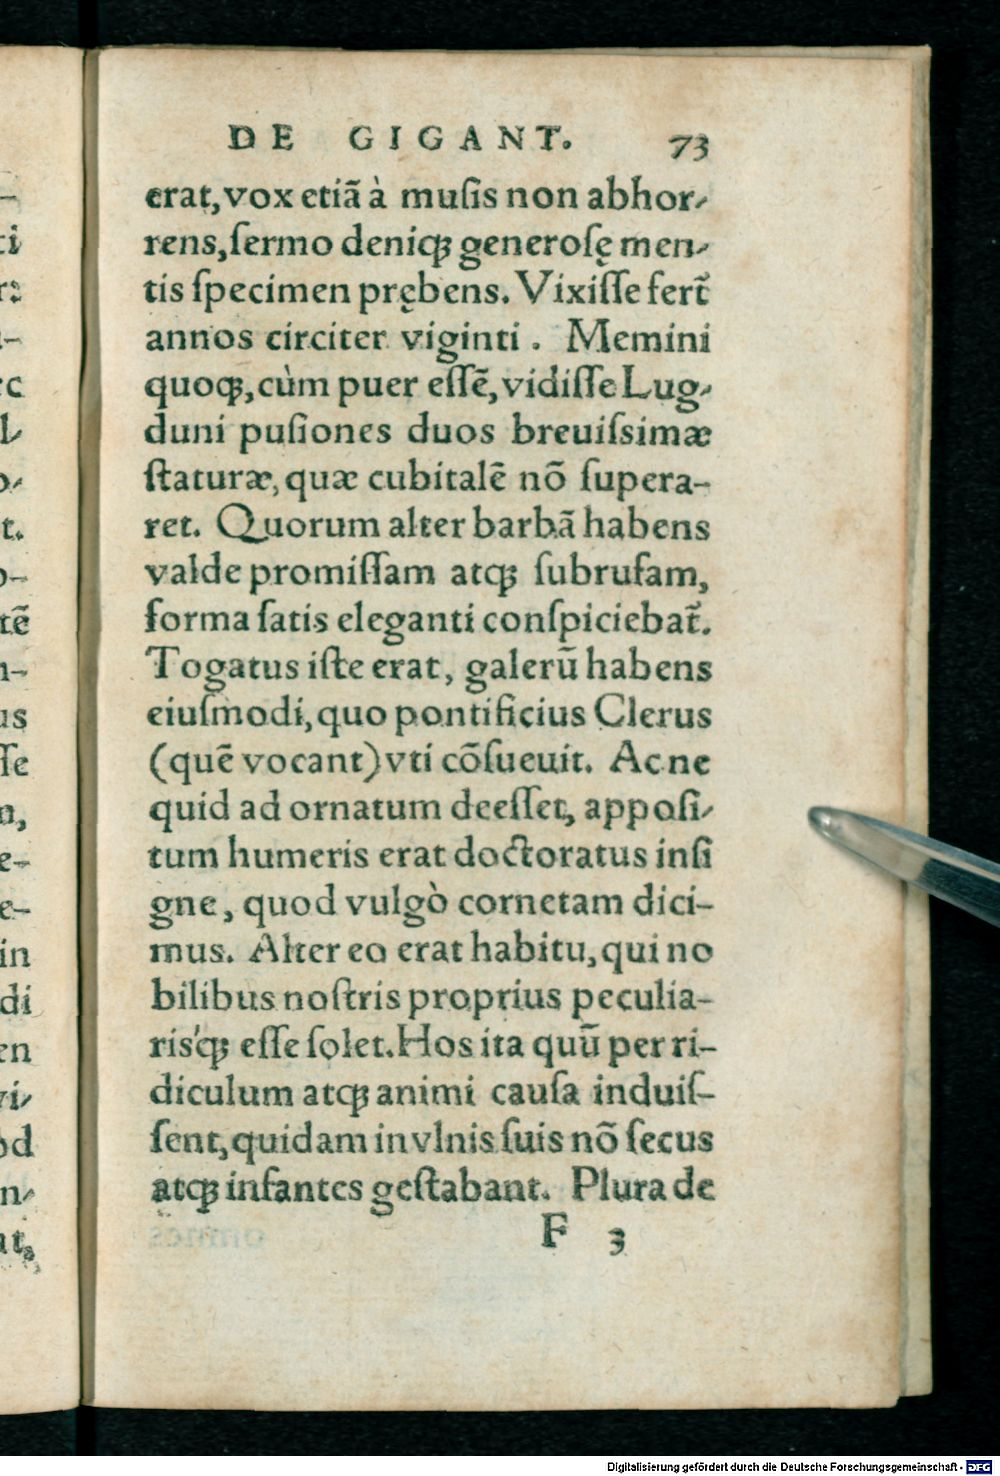 DE GIGANT. 73
erat, vox etiã à musis non abhor-
rens, sermo deniq; generosę men-
tis specimen prębens. Vixisse fert̃
annos circiter viginti. Memini
quoq;, cùm puer essẽ, vidisse Lug-
duni pusiones duos breuissimæ
staturæ, quæ cubitalẽ nõ supera-
ret. Quorum alter barbã habens
valde promissam atq; subrufam,
forma satis eleganti conspiciebat̃.
Togatus iste erat, galerũ habens
eiusmodi, quo pontificius Clerus
(quẽ vocant) vti cõsueuit. Ac ne
quid ad ornatum deesset, apposi-
tum humeris erat doctoratus insi
gne, quod vulgò cornetam dici-
mus. Alter eo erat habitu, qui no
bilibus nostris proprius peculia-
ris'q; esse solet. Hos ita quũ per ri-
diculum atq; animi causa induis-
sent, quidam in vlnis suis nõ secus
atq; infantes gestabant. Plura de
F 3
Digitalisierung gefördert durch die Deutsche Forschungsgemeinschaft - DFG